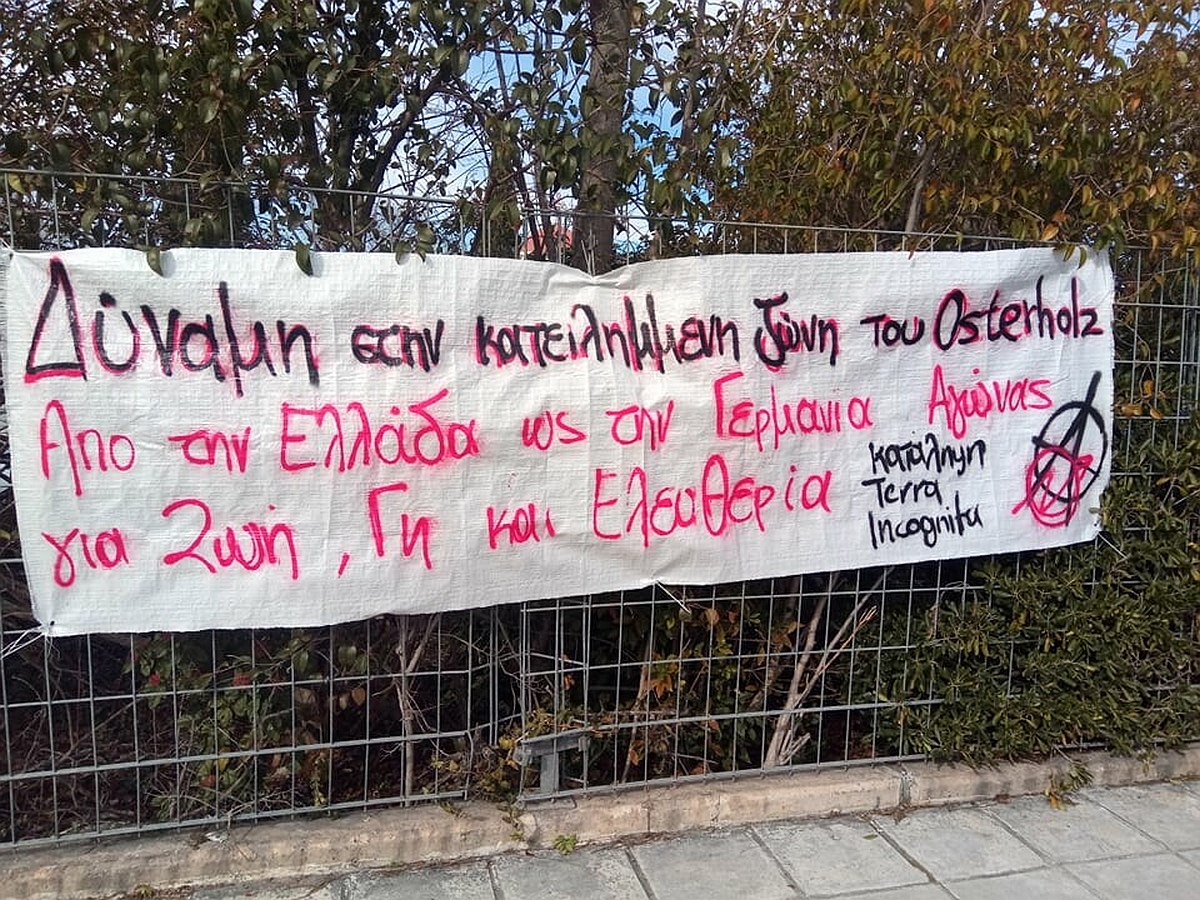 Δύναμη στην κατειλημμενη ζώνη του Osterholz
Απο την Ελλάδα ως την Γερμανια Αγώνας
για Ζωή , Γη και Ελευθερία
κατάληψη
Terra
Incognita